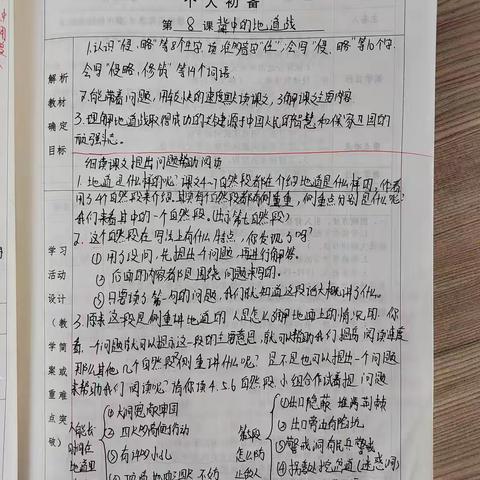 个人初备
第 8 课 冀中的地道战
1.认识“侵、略”等8个生字,读准多音字“任”,会写“侵、略”等10个字,
会写“侵略、修筑”等14个词语
2.能带着问题,用较快的速度默读课文,了解课文主要内容
3.理解地道战取得成功的关键源于中国人民的智慧和保家卫国的
顽强斗志。
解析
教材
确定
目标
细读课文提出问题帮助阅读
1.地道是什么样的呢?课文4-7自然段都在介绍地道是什么样的,作者
用了4个自然段来介绍
我们来看其中的一个自然段。(出示第五自然段)
2.这个自然段在写法上有什么特点,你发现了吗?
①用了设问,先提出一个问题,再进行解答。
②后面的内容都是围绕问题来写的。
③只要读了第一句的问题,我们就知道这段话大概讲了什么。
3.原来这一段是侧重讲地道的人是怎么了解地面上的情况
看,一个问题就可以提示这一段的主要意思,就可以帮助我们提高阅读速度
那么其他几个自然段侧重讲什么呢?是不是也可以提出一个问题
来帮助我们阅读呢?请你读4.5.6自然段,小组合作试着提问题
学习
活动
设计
(教
学简
案或
重难
点突
破)
人能长
时间在
地道里
①人间
②
③有
④
第5段
怎么防
止敌人
①出口隐蔽 堆满荆棘
②出口旁边有陷坑
③
④拐